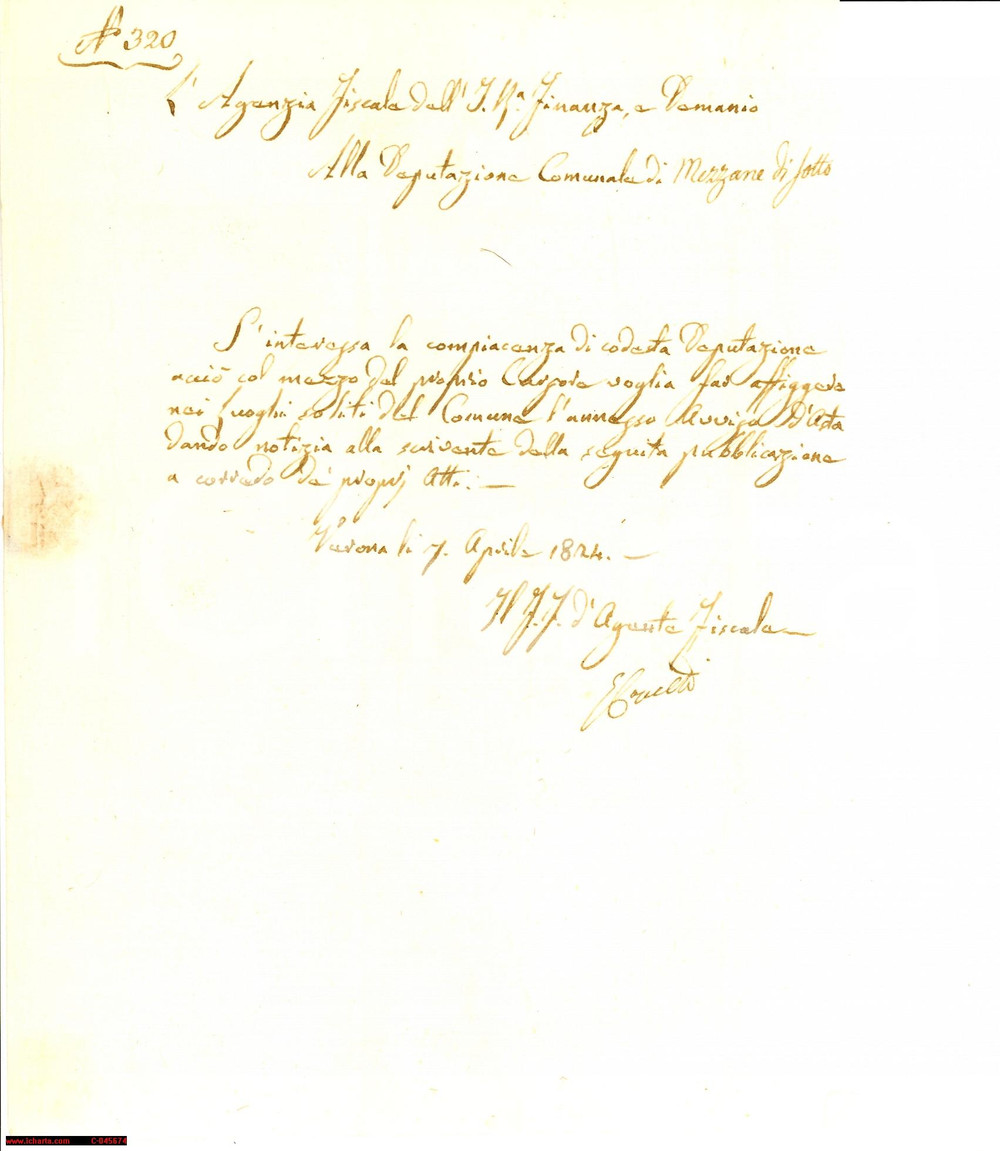 N° 320
L'Agenzia Fiscale dell'I. R.a Finanza, e Demanio
Alla Deputazione Comunale di Mezzane di Sotto
S'interessa la compiacenza di codesta Deputazione
acciò col mezzo del proprio Cursore voglia far affiggere
nei Luoghi soliti del Comune l'annesso Avviso D'Asta
dando notizia alla scrivente della seguita pubblicazione
a corredo de' proprj Atti. —
Verona li 7. Aprile 1824. —
Il F.F. d'Agente Fiscale —
www.icharta.com C-045574